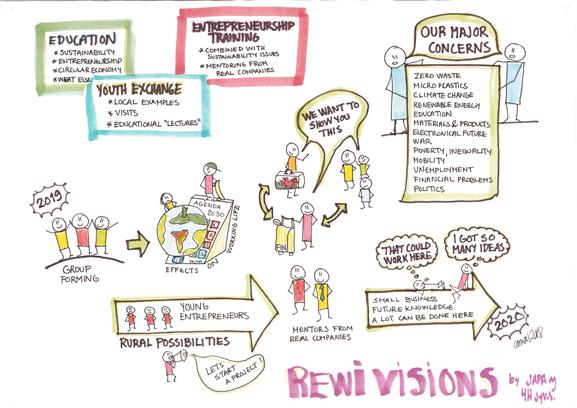 EDUCATION
* SUSTAINABILITY
* ENTREPRENEURSHIP
* CIRCULAR ECONOMY
* WHAT ELSE
ENTREPRENEURSHIP
TRAINING
* COMBINED WITH
SUSTAINABILITY ISSUES
* MENTORING FROM
REAL COMPANIES
YOUTH EXCHANGE
* LOCAL EXAMPLES
* VISITS
* EDUCATIONAL "LECTURES"
OUR MAJOR
CONCERNS
ZERO WASTE
MICRO PLASTICS
CLIMATE CHANGE
RENEWABLE ENERGY
EDUCATION
MATERIALS & PRODUCTS
ELECTRONICAL FUTURE
WAR
POVERTY, INEQUALITY
MOBILITY
UNEMPLOYMENT
FINANCIAL PROBLEMS
POLITICS
WE WANT TO
SHOW YOU
THIS
2019
GROUP
FORMING
AGENDA
2030
EFFECTS ON WORKING LIFE
FIN
THAT COULD
WORK HERE
I GOT SO
MANY IDEAS
YOUNG
ENTREPRENEURS
MENTORS FROM
REAL COMPANIES
SMALL BUSINESS
FUTURE KNOWLEDGE
A LOT CAN BE DONE HERE
2020
RURAL POSSIBILITIES
LETS
START
A PROJECT
REWI VISIONS
by JAPA ry
4H syv.s.